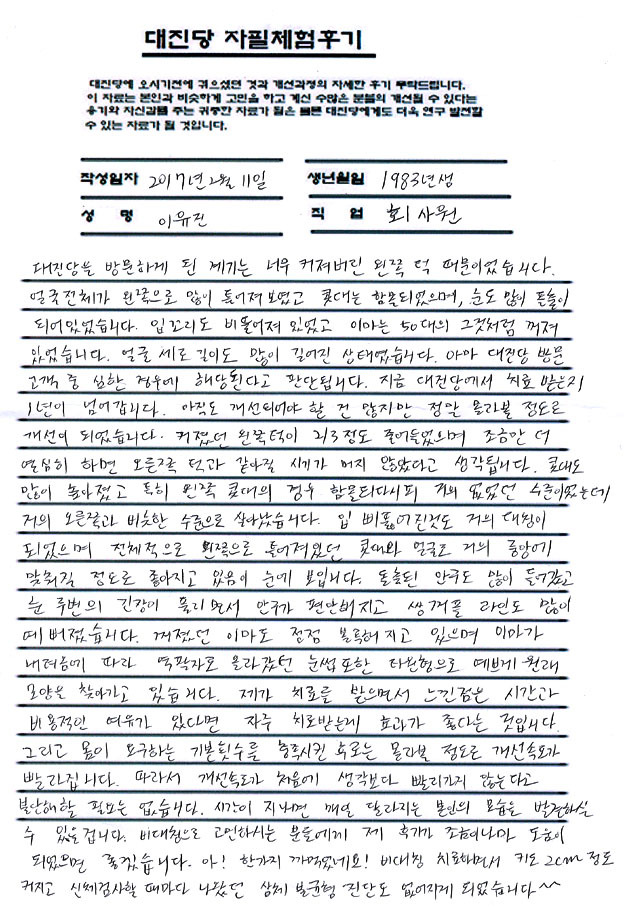 대진당 자필체험후기
대진당에 오시기전에 겪으셨던 것과 개선과정의 자세한 후기 부탁드립니다.
이 자료는 본인과 비슷하게 고민을 하고 계신 수많은 분들의 개선될 수 있다는
용기와 자신감을 주는 귀중한 자료가 될은 물론 대진당에게도 더욱 연구 발전할
수 있는 자료가 될 것입니다.
작성일자 2017년 2월 11일 생년월일 1983년생
성 명 이유진 직 업 회사원
대진당을 방문하게 된 계기는 너무 커져버린 왼쪽 턱 때문이었습니다.
얼굴전체가 왼쪽으로 많이 틀어져 보였고 콧대는 함몰되었으며, 눈도 많이 돌출이
되어있었습니다. 입꼬리도 비뚤어져 있었고 이마는 50대의 그것처럼 꺼져
있었습니다. 얼굴 세로 길이도 많이 길어진 상태였습니다. 아마 대진당 방문
고객 중 심한 경우에 해당된다고 판단됩니다. 지금 대진당에서 치료 받은지
1년이 넘어갑니다. 아직도 개선되어야 할 건 많지만 정말 몰라볼 정도로
개선이 되었습니다. 커졌던 왼쪽턱이 2/3정도 줄어들었으며 조금만 더
열심히 하면 오른쪽 턱과 같아질 시기가 머지 않았다고 생각됩니다. 콧대도
많이 높아졌고 특히 왼쪽 콧대의 경우 함몰되다시피 거의 없었던 수준이었는데
거의 오른쪽과 비슷한 수준으로 살아났습니다. 입 삐뚤어진것도 거의 대칭이
되었으며 전체적으로 왼쪽으로 틀어져있던 콧대와 얼굴도 거의 중앙에
맞춰질 정도로 좋아지고 있음이 눈에 보입니다. 돌출된 안구도 많이 들어갔고
눈 주변의 긴장이 풀리면서 안구가 편안해지고 쌍꺼풀 라인도 많이
예뻐졌습니다. 꺼졌던 이마도 점점 볼록해지고 있으며 이마가
내려옴에 따라 역팔자로 올라갔던 눈썹 또한 타원형으로 예쁘게 원래
모양을 찾아가고 있습니다. 제가 치료를 받으면서 느낀점은 시간과
비용적인 여유가 있다면 자주 치료받는게 효과가 좋다는 것입니다.
그리고 몸이 요구하는 기본횟수를 충족시킨 후로는 몰라볼 정도로 개선속도가
빨라집니다. 따라서 개선속도가 처음에 생각보다 빨리가지 않는다고
불안해할 필요는 없습니다. 시간이 지나면 매일 달라지는 본인의 모습을 발견하실
수 있을겁니다. 비대칭으로 고민하시는 분들에게 제 후기가 조금이나마 도움이
되었으면 좋겠습니다. 아! 한가지 까먹었네요! 비대칭 치료하면서 키도 2cm 정도
커지고 신체검사할 때마다 나왔던 상체 불균형 진단도 없어지게 되었습니다^^